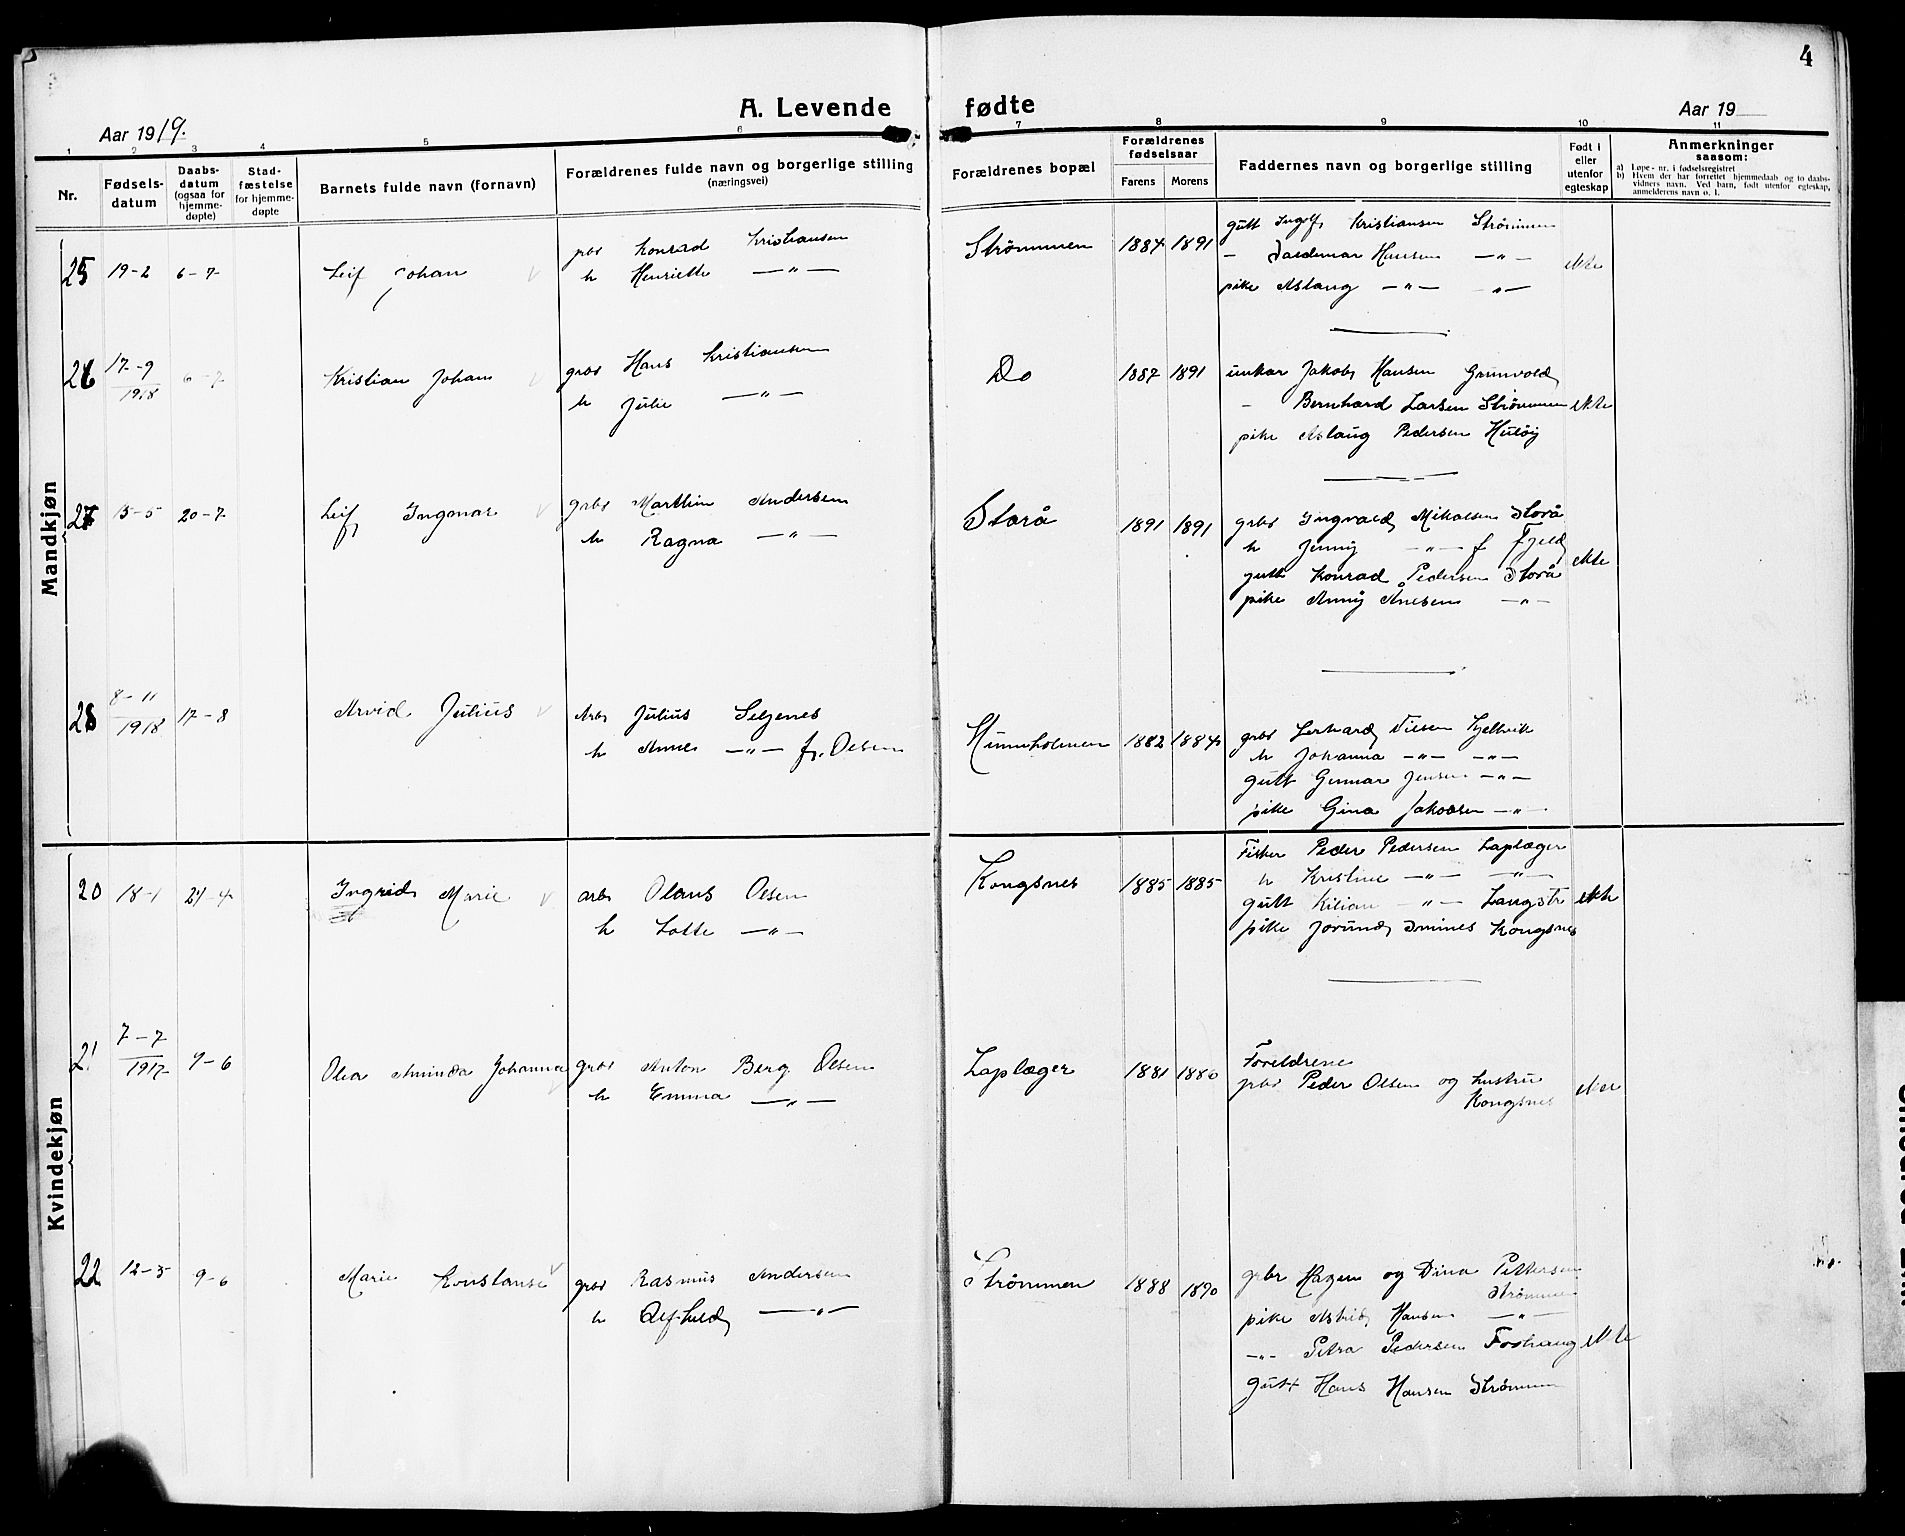 4
A. Levende fødte
Aar 1919.
Aar 19
1 2 3 4 5 6 7 8 9 10 11
Nr.
Fødsels-
datum
Daabs-
datum
(ogsaa for
hjemme-
døpte)
Stad-
fæstelse
for hjemme-
døpte
Barnets fulde navn (fornavn)
Forældrenes fulde navn og borgerlige stilling
(næringsvei)
Forældrenes bopæl
Forældrenes
fødselsaar
Farens Morens
Faddernes navn og borgerlige stilling
Født i
eller
utenfor
egteskap
Anmerkninger
saasom:
a) Løpe-nr. i fødselsregistret
b) Hvem der har forrettet hjemmedaab og to daabs-
vidners navn. Ved barn, født utenfor egteskap,
anmelderens navn o. l.
Mandkjøn
25 19-2 6-7 Leif Johan
Konrad Kristiansen
h Henriette —"—
Strømmen 1884 1891
gutt Ingolf Kristiansen Strømmen
— Valdemar Hansen —"—
pike Aslaug —"— —"—
ekte
26 17-9
1918
6-7 Kristian Johan
grbr Hans Kristiansen
h Julie —"—
Do 1887 1891
Jakob Hansen Grunvold
— Bernhard Larsen Strømmen
pike Aslaug Pedersen Huløy
ekte
27 15-5 20-7 Leif Ingmar
grbr Marthin Andersen
h Ragna —"—
Storå 1891 1891
grbr Ingvald Mikalsen Storå
h Jenny —"— f Fjeld
gutt Konrad Pedersen Storå
pike Anny —"—
ekte
28 8-11
1918
17-8 Arvid Julius
Arb Julius Seljenes
h Anne —"— f. Olsen
1882 1884
grbr Gerhard Nilsen Kjelvik
h Johanna —"— —"—
gutt Gunnar Jensen —"—
pike Gina Jakobsen —"—
Kvindekjøn
20 18-1 21-4 Ingrid Marie
arb Olaus Olsen
h Lotte —"—
Kongsnes 1885 1885
Fisker Peder Pedersen Laplæger
h Kristine —"— —"—
gutt Kilian —"— Langstr
pike Jorund Kongsnes
ekte
21 7-7
1917
9-6 Olea Aminda Johanna
grbr Anton Berg Olsen
h Emma —"—
Laplæger 1881 1886
Foreldrene
grbr Peder Olsen og hustru
Kongsnes
ekte
22 12-3 9-6 Marie Konstanse
grbr Rasmus Andersen
h Alfhild —"—
Strømmen 1888 1890
grbr Hagen og Dina Pettersen
Strømmen
pike Astrid Hansen —"—
—"— Petra Pedersen
gutt Hans Hansen Strømmen
ekte